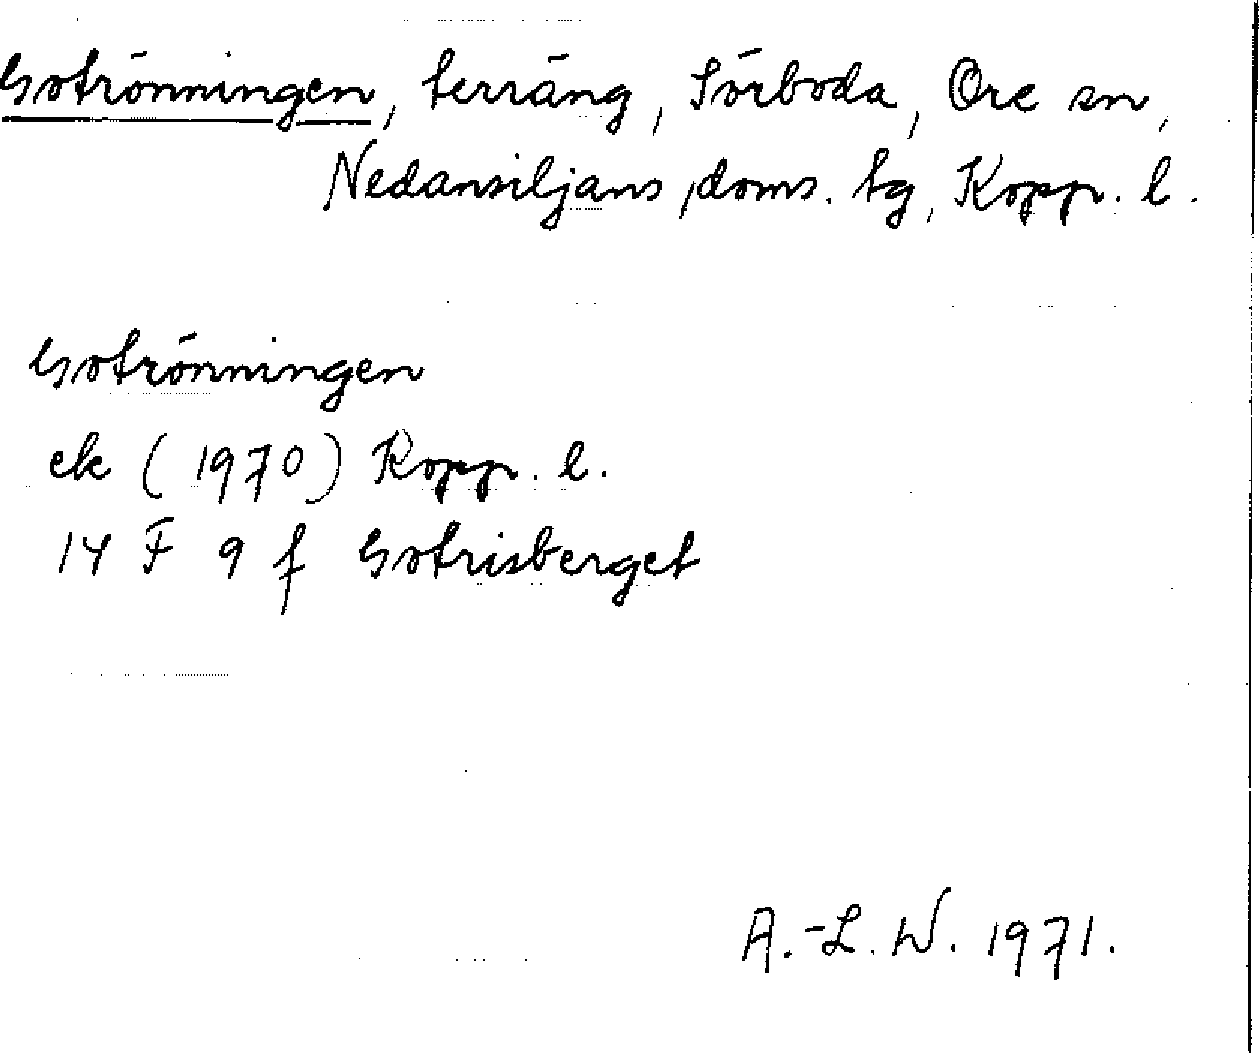 Gotrönningen, terräng, Sörboda, Ore sn,
Nedansiljans doms. tg, Kopp. l.
Gotrönningen
ek (1970) Kopp. l.
14 F 9 f Gotrisberget
A.-L. W. 1971.